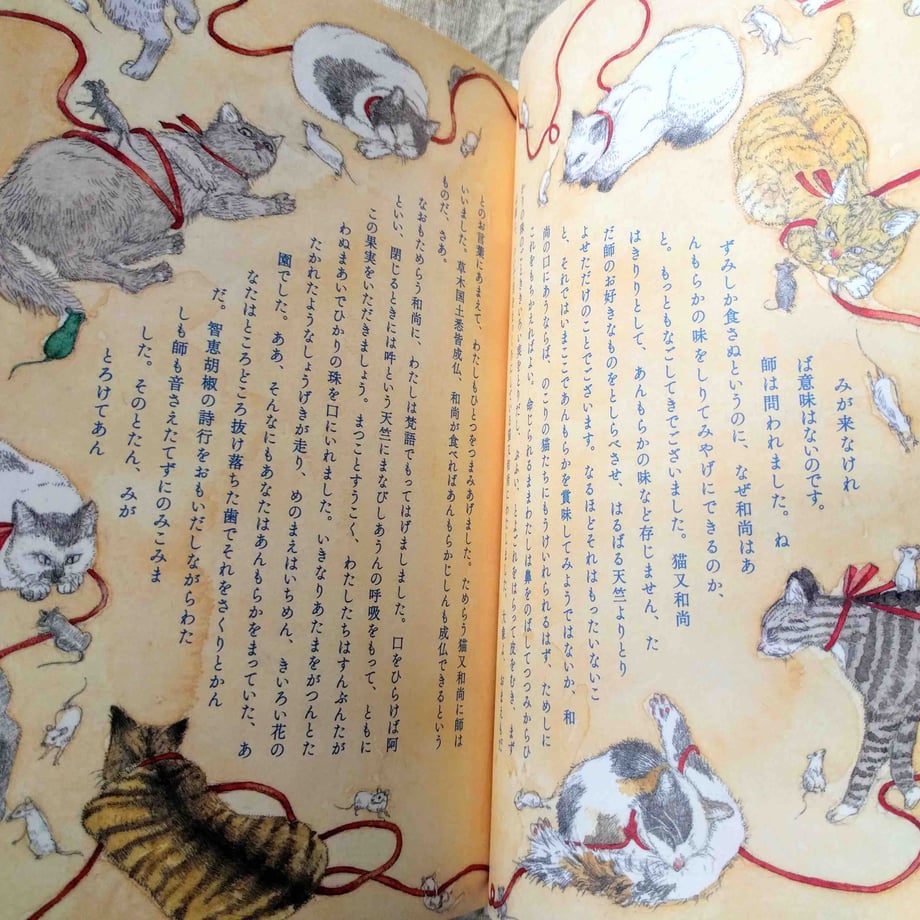 みが来なけれ
ば意味はないのです。
師は問われました。ね
ずみしか食さぬというのに、なぜ和尚はあ
んもらかの味をしりてみやげにできるのか、
と。もっともなごしてきでございました。猫又和尚
はきりりとして、あんもらかの味など存じません、た
だ師のお好きなものをとしらべさせ、はるばる天竺よりとり
よせただけのことでございます。なるほどそれはもったいないこ
と、それではいまここであんもらかを賞味してみようではないか、和
尚の口にあうならば、のこりの猫たちにもうけいれられるはず、ためしに
これをもらかえればよい。命じられるままわたしは鼻をのばしてつつみからひ
とのお言葉にあまえて、わたしもひとつをつまみあげました。ためらう猫又和尚に師は
いいました。草木国土悉皆成仏、和尚が食べればあんもらかじしんも成仏できるという
ものだ、さあ。
なおもためらう和尚に、わたしは梵語でもってはげましました。口をひらけば阿
といい、閉じるときには吽という天竺にまなびしあうんの呼吸をもって、ともに
この果実をいただきましょう。まつことすうこく、わたしたちはすんぶんたが
わぬまあいでひかりの珠を口にいれました。いきなりあたまをがつんとた
たかれたようなしょうげきが走り、めのまえはいちめん、きいろい花の
園でした。ああ、そんなにもあなたはあんもらかをまっていた、あ
なたはところどころ抜け落ちた歯でそれをさくりとかん
だ。智恵胡椒の詩行をおもいだしながらわた
しも師も音さえたてずにのみこみま
した。そのとたん、みが
とろけてあん